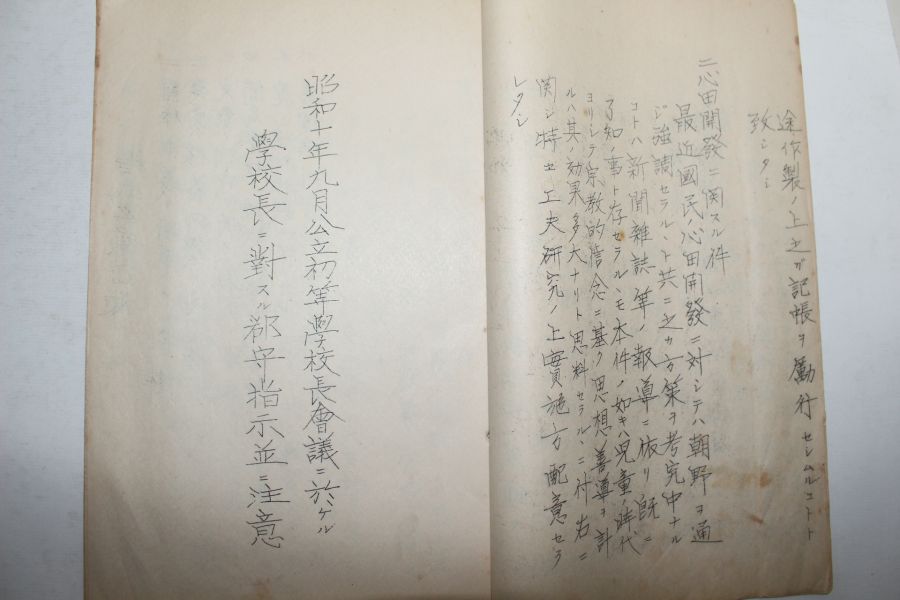 途作製ノ上之ガ記帳ヲ励行セシムルコトト
致シタシ
二心田開發ニ関スル件
最近國民ノ心田開發ニ対シテハ朝野ヲ通
ジ強調セラルヽト共ニ之カ方策ヲ考究中ナル
コトハ新聞雑誌等ノ報導ニ依リ既ニ
了知ノ事ト存セラルヽモ本件ノ如キハ児童ノ時代
ヨリシテ宗教的信念ニ基ク思想善導ヲ計
ルハ其ノ効果多大ナリト思料セラルヽニ付右ニ
関シ特ニ工夫研究ノ上實施方配意セラ
レタシ
昭和十年九月公立初等學校長會議ニ於ケル
學校長ニ對スル郡守指示並ニ注意